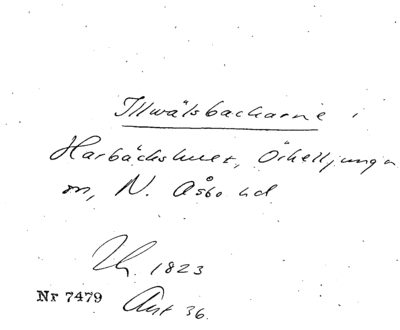 Illwälsbackarne i
Harbäckshult, Örkelljunga
sn, N. Åsbo hd
Uh. 1823
Nr 7479 Akt 36.